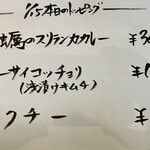 1/15 本日のトッピング
のスリランカカレー ¥3
ーサイコッチョリ ¥1
(浅漬けキムチ)
クチー ¥